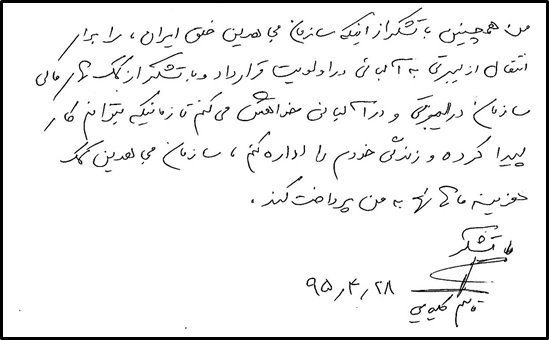 من همچنین با تشکر از اینکه سازمان مجاهدین خلق ایران، را برای
انتقال از لیبرتی به آلبانی در اولویت قرارداد و با تشکر از کمک های مالی
سازمان در لیبرتی و در آلبانی خواهش می کنم تا زمانیکه بتوانم کار
پیدا کرده و زندگی خودم را اداره کنم، سازمان مجاهدین کمک
هزینه ماهانه به من پرداخت کند.
با تشکر
۹۵٫۴٫۲۸
قاسم